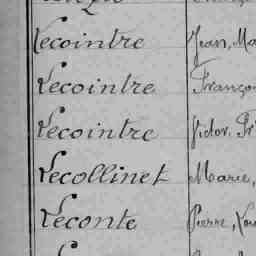 Lecointre Jean, Ma
Lecointre Franço
Lecointre Victor, Fr
Lecollinet Marie,
Leconte Pierre, Lou